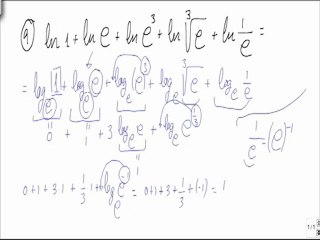 9) ln 1 + ln e + ln e³ + ln ∛e + ln 1/e =
= logₑ 1 + logₑ e + logₑ e³ + logₑ ∛e + logₑ 1/e
0 + 1 + 3 logₑ e + logₑ e^(1/3)
1/e = (e)⁻¹
0+1+3·1+1/3·1+logₑ e⁻¹ = 0+1+3+1/3+(-1) = 1
1/1